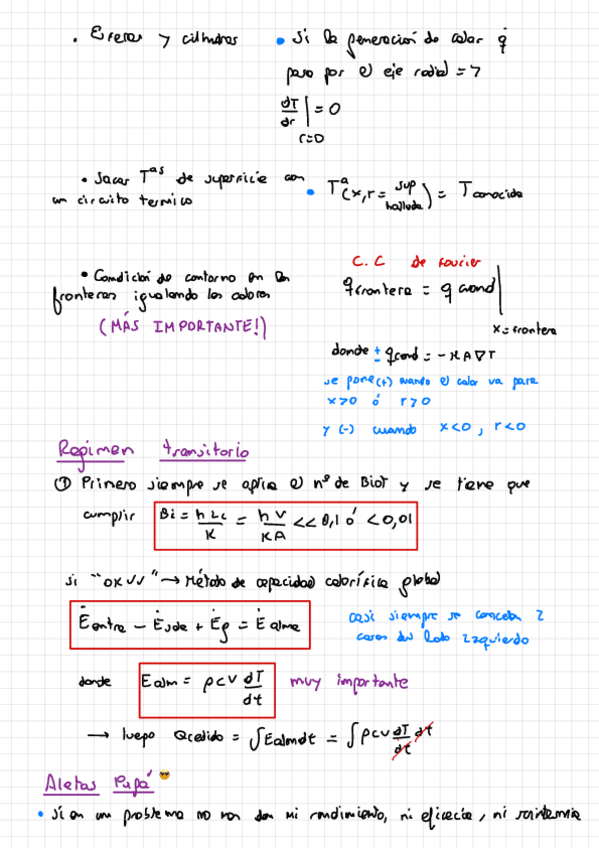 • Esferas y cilindros
• Si la generación de calor q̇
pasa por el eje radial =>
dT/dr | r=0 = 0
• Sacar Tªs de superficie con
un circuito termico
• Tª(x, r = sup hallada) = T conocida
• Condición de contorno en las
fronteras igualando los calores
(MÁS IMPORTANTE!)
C.C de Fourier
q frontera = q cond | x = frontera
donde ± q cond = -KA∇T
se pone (+) cuando el calor va para
x>0 ó r>0
y (-) cuando x<0, r<0
Regimen transitorio
① Primero siempre se aplica el nº de Biot y se tiene que
cumplir Bi = hLc/K = hV/KA << 0,1 ó < 0,01
si "OK√√" → Método de capacidad calorífica global
Ė entra - Ė sale + Ė g = Ė alma
casi siempre se cancelan 2
cosas del lado izquierdo
donde Ealm = ρcV dT/dt muy importante
→ luego Qcedido = ∫Ealm dt = ∫ρcV dT/dt dt
Aletas Papá 😎
• Si en un problema no nos dan ni rendimiento, ni eficacia, ni